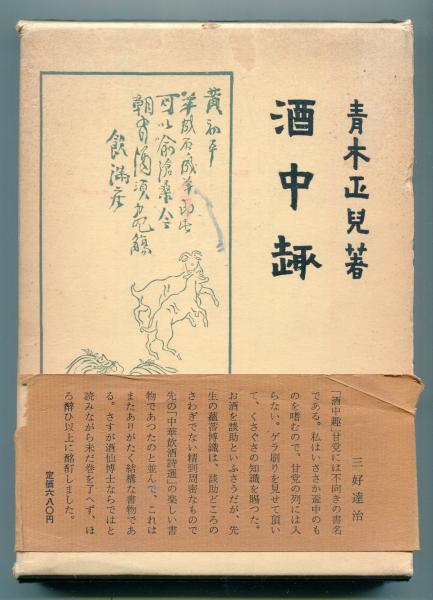 青木正兒著
酒中趣
黄初平
可以喩滄桑今
三好達治
「酒中趣」甘党には不向きの書名
である。私はいささか盃中のも
のを嗜むので、甘党の列には入
らない。ゲラ刷りを見せて頂い
て、くさぐさの知識を賜つた。
お酒を談助といふさうだが、先
生の蘊蓄博識は、談助どころの
さわぎでない精到周密なもので
先の「中華飲酒詩選」の楽しい書
物であつたのと並んで、これは
またありがたく結構な書物であ
る。さすが酒仙博士ならではと
読みながら未だ巻を了へず、ほ
ろ醉ひ以上に酩酊しました。
定価六八〇円